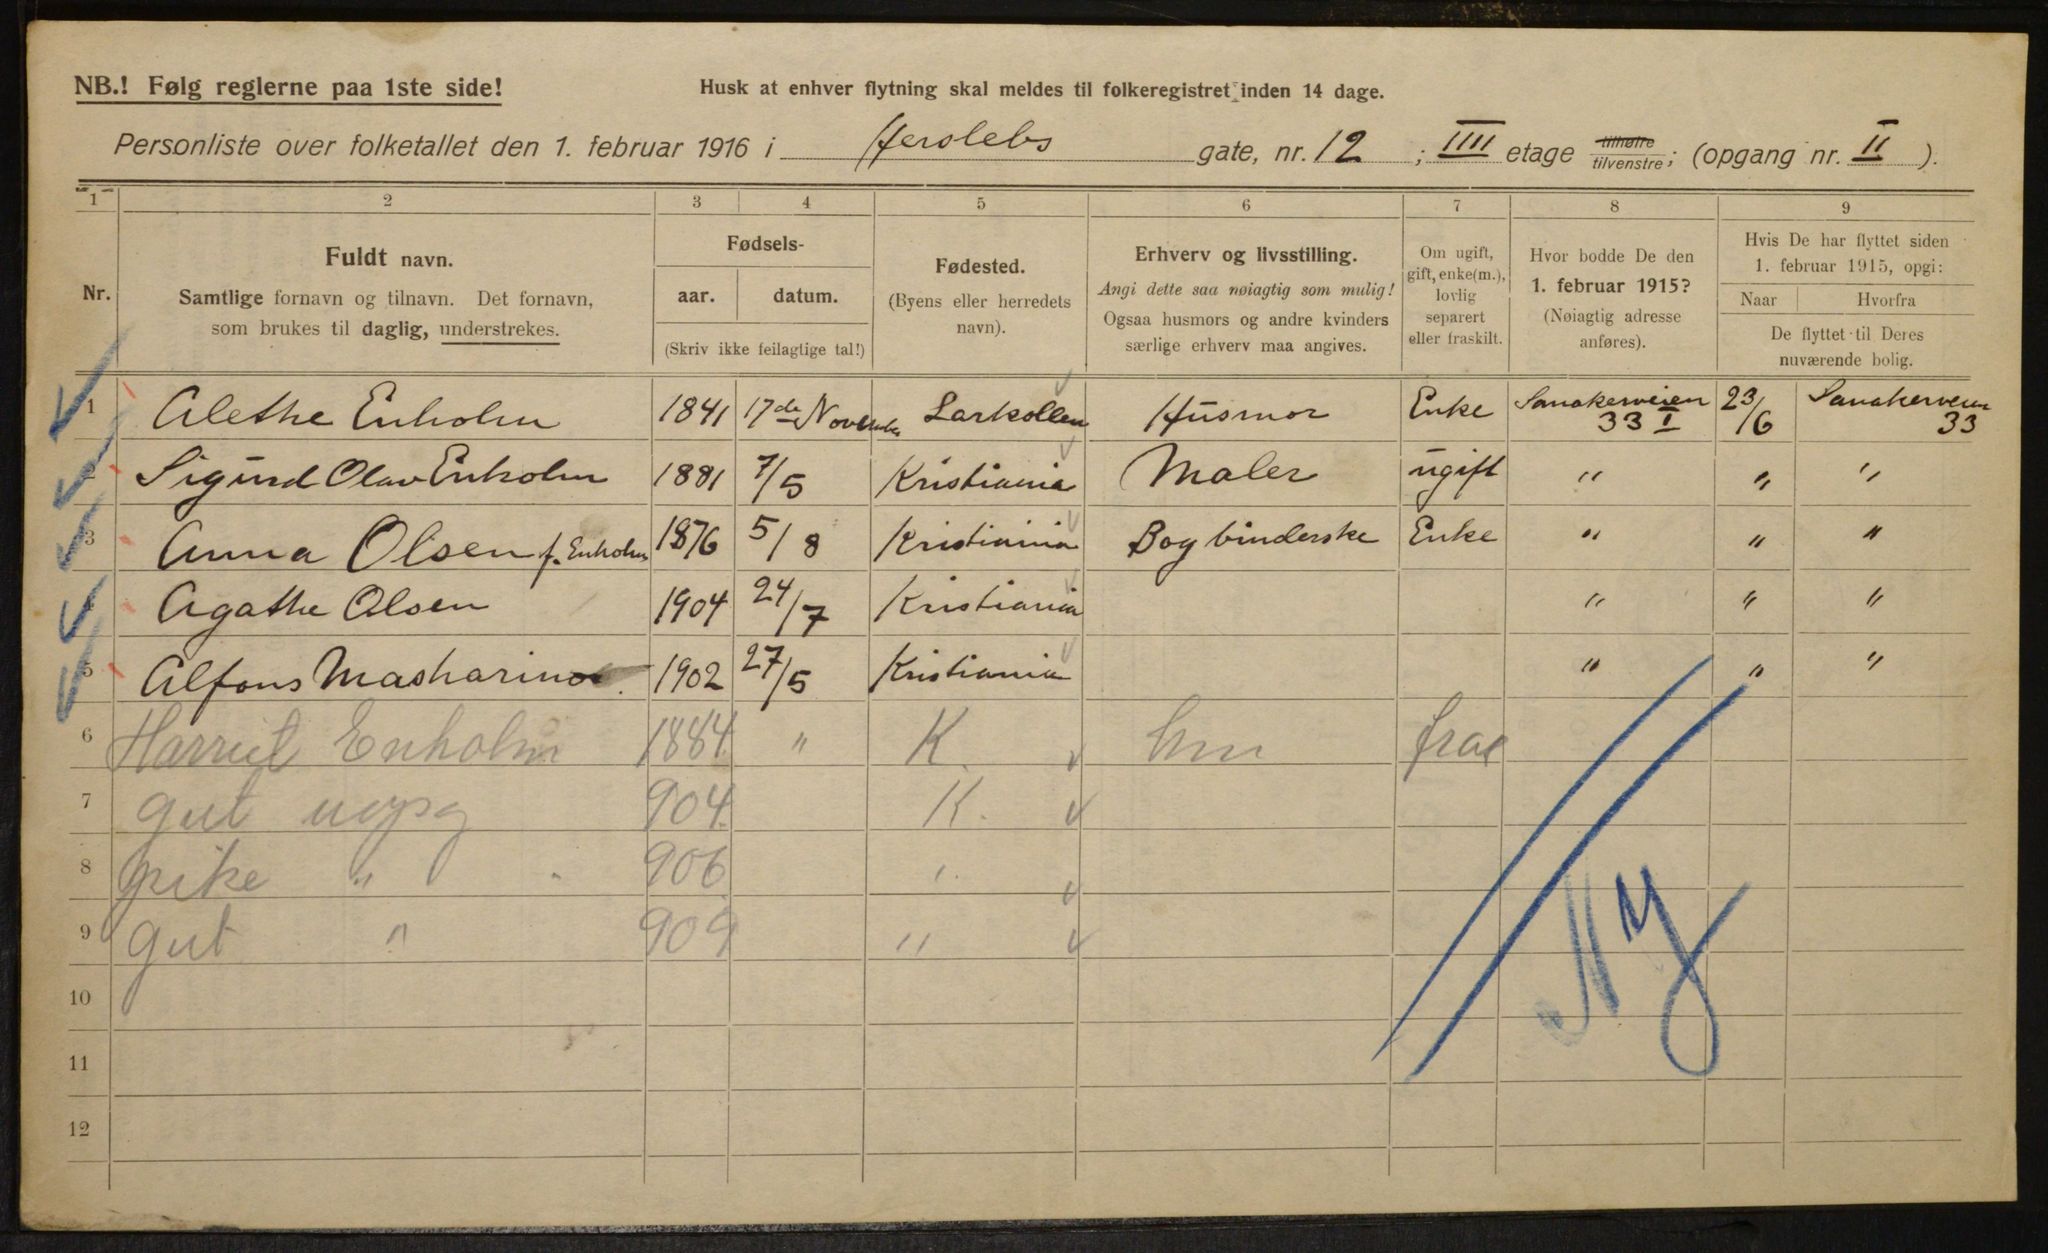 NB.! Følg reglerne paa 1ste side!
Husk at enhver flytning skal meldes til folkeregistret inden 14 dage.
Personliste over folketallet den 1. februar 1916 i Herslebs gate, nr. 12; IIII etage tilhøire tilvenstre; (opgang nr. II).
1 2 3 4 5 6 7 8 9
Nr.
Fuldt navn.
Samtlige fornavn og tilnavn. Det fornavn,
som brukes til daglig, understrekes.
Fødsels-
aar. datum.
(Skriv ikke feilagtige tal!)
Fødested.
(Byens eller herredets
navn).
Erhverv og livsstilling.
Angi dette saa nøiagtig som mulig!
Ogsaa husmors og andre kvinders
særlige erhverv maa angives.
Om ugift,
gift, enke(m.),
lovlig
separert
eller fraskilt.
Hvor bodde De den
1. februar 1915?
(Nøiagtig adresse
anføres).
Hvis De har flyttet siden
1. februar 1915, opgi:
Naar Hvorfra
De flyttet til Deres
nuværende bolig.
1 Alethe Enholm 1841 17de November Larkollen Husmor Enke Sanakerveien 33 I 23/6 Sanakerveien 33
2 Sigurd Olav Enholm 1881 7/5 Kristiania Maler ugift " " "
3 Anna Olsen f. Enholm 1876 5/8 Kristiania Bogbinderske Enke " " "
4 Agathe Olsen 1904 24/7 Kristiania " " "
5 Alfons Masharino 1902 27/5 Kristiania " " "
6 Harriet Enholm 1884 " K. frae
7 gut uopg 904 K.
8 pike " 906 "
9 gut " 909 "
10
11
12
Ny